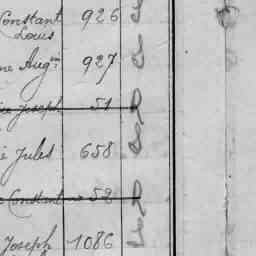 Constant 926
Louis
Augin 927
Joseph 51
Jules 658
Constant 52
Joseph 1086